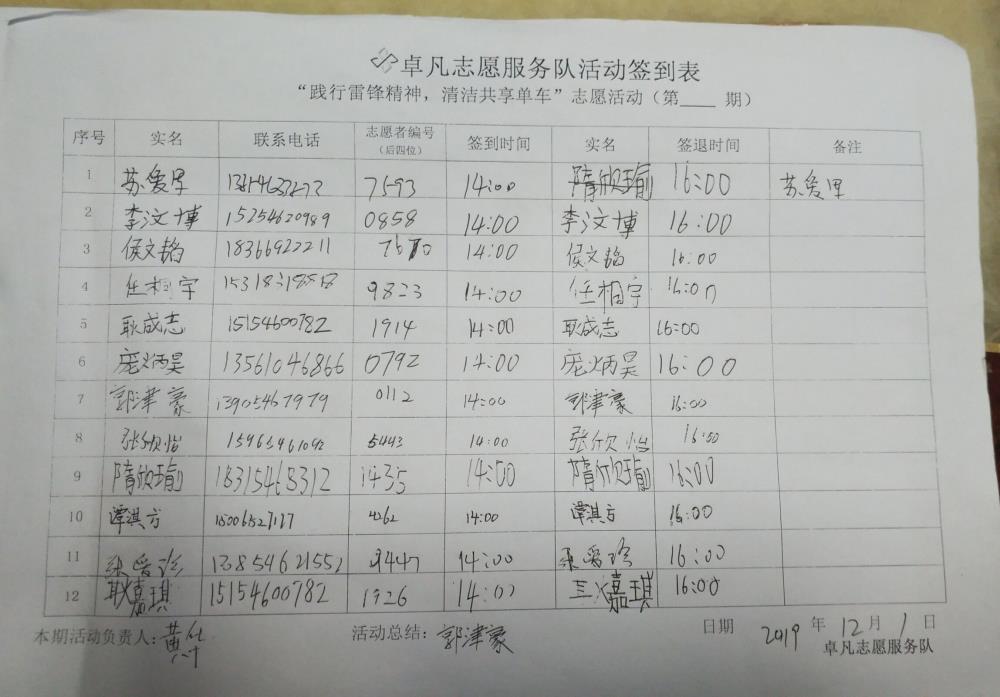 卓凡志愿服务队活动签到表
“践行雷锋精神，清洁共享单车”志愿活动（第____ 期）
序号 实名 联系电话 志愿者编号（后四位） 签到时间 实名 签退时间 备注
1 苏爱军 7593 14:00 隋欣瑜 16:00 苏爱军
2 李汶博 15254620989 0858 14:00 李汶博 16:00
3 侯文韬 18366922211 14:00 侯文韬 16:00
4 任相宇 9823 14:00 任相宇 16:00
5 耿成志 15154600782 1914 14:00 耿成志 16:00
6 庞炳昊 13561046866 0792 14:00 庞炳昊 16:00
7 郭津豪 13905467979 0112 14:00 郭津豪 16:00
8 张欣怡 5443 14:00 张欣怡 16:00
9 隋欣瑜 18315468312 1435 14:00 隋欣瑜 16:00
10 谭淇方 14:00 谭淇方 16:00
11 13854621552 9447 14:00 16:00
12 耿嘉琪 15154600782 1926 14:00 嘉琪 16:00
本期活动负责人：黄 活动总结：郭津豪 日期 2019 年 12 月 1 日
卓凡志愿服务队